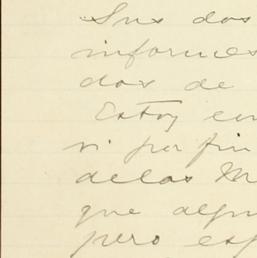 Sus dos
informes
dos de
Estoy en
vi por fin
de las M
que algu
pero esp